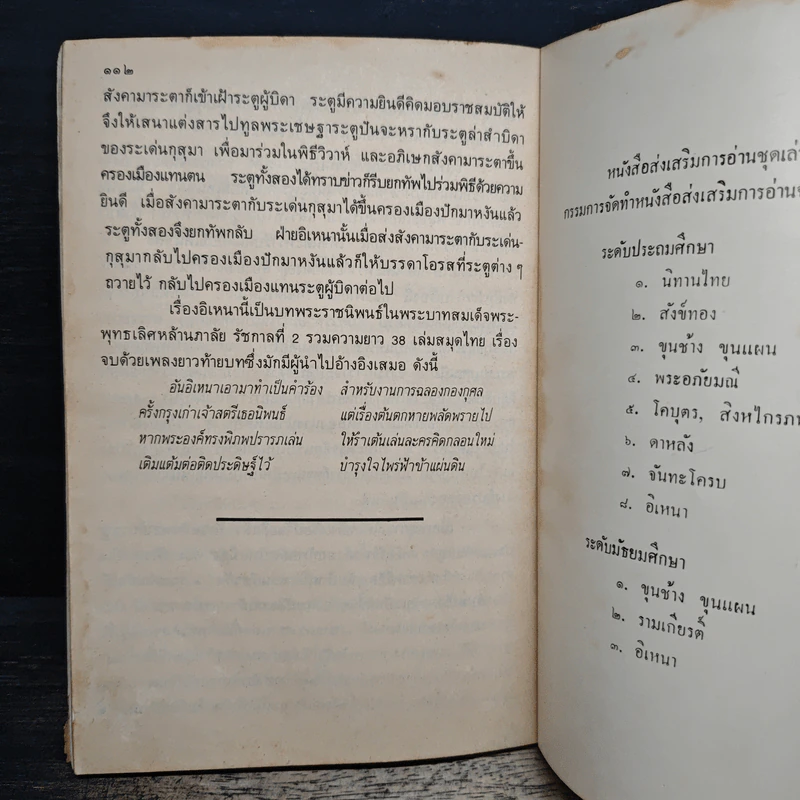 ๑๑๒
สังคามาระตาก็เข้าเฝ้าระตูผู้บิดา ระตูมีความยินดีคิดมอบราชสมบัติให้
จึงให้เสนาแต่งสารไปทูลพระเชษฐาระตูปันจะหรากับระตูล่าสำบิดา
ของระเด่นกุสุมา เพื่อมาร่วมในพิธีวิวาห์ และอภิเษกสังคามาระตาขึ้น
ครองเมืองแทนตน ระตูทั้งสองได้ทราบข่าวก็รีบยกทัพไปร่วมพิธีด้วยความ
ยินดี เมื่อสังคามาระตากับระเด่นกุสุมาได้ขึ้นครองเมืองปักมาหงันแล้ว
ระตูทั้งสองจึงยกทัพกลับ ฝ่ายอิเหนานั้นเมื่อส่งสังคามาระตากับระเด่น-
กุสุมากลับไปครองเมืองปักมาหงันแล้วก็ให้บรรดาโอรสที่ระตูต่าง ๆ
ถวายไว้ กลับไปครองเมืองแทนระตูผู้บิดาต่อไป
เรื่องอิเหนานี้เป็นบทพระราชนิพนธ์ในพระบาทสมเด็จพระ-
พุทธเลิศหล้านภาลัย รัชกาลที่ 2 รวมความยาว 38 เล่มสมุดไทย เรื่อง
จบด้วยเพลงยาวท้ายบทซึ่งมักมีผู้นำไปอ้างอิงเสมอ ดังนี้
อันอิเหนาเอามาทำเป็นคำร้อง สำหรับงานการฉลองกองกุศล
ครั้งกรุงเก่าเจ้าสตรีเธอนิพนธ์ แต่เรื่องต้นตกหายพลัดพรายไป
หากพระองค์ทรงพิภพปรารภเล่น ให้รำเต้นเล่นละครคิดกลอนใหม่
เติมแต้มต่อติดประดิษฐ์ไว้ บำรุงใจไพร่ฟ้าข้าแผ่นดิน
หนังสือส่งเสริมการอ่านชุดเล่า
กรรมการจัดทำหนังสือส่งเสริมการอ่าน
ระดับประถมศึกษา
๑. นิทานไทย
๒. สังข์ทอง
๓. ขุนช้าง ขุนแผน
๔. พระอภัยมณี
๕. โคบุตร, สิงหไกรภพ
๖. ดาหลัง
๗. จันทะโครบ
๘. อิเหนา
ระดับมัธยมศึกษา
๑. ขุนช้าง ขุนแผน
๒. รามเกียรติ์
๓. อิเหนา